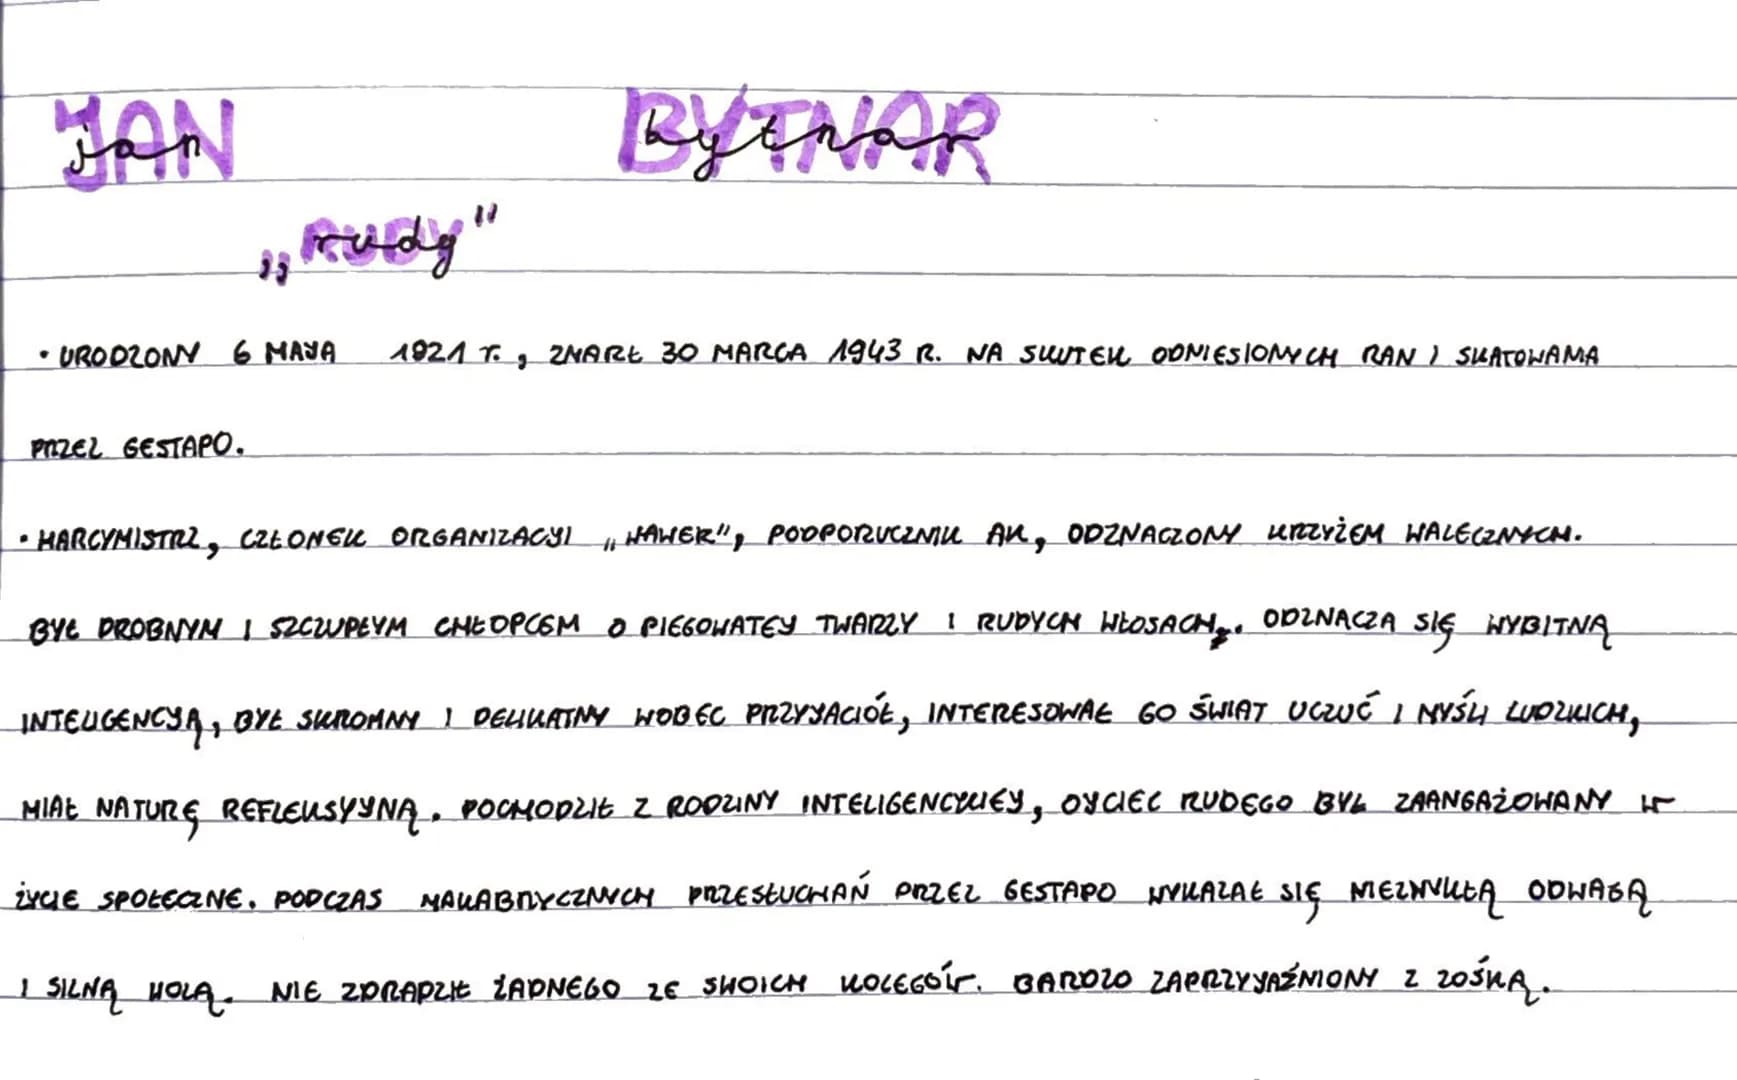 JAN BYTNAR
jan bytnar
„RUDY"
rudy
• URODZONY 6 MAJA 1921 r., ZMARŁ 30 MARCA 1943 R. NA SKUTEK ODNIESIONYCH RAN I SKATOWANIA
PRZEZ GESTAPO.
• HARCMISTRZ, CZŁONEK ORGANIZACJI „WAWER", PODPORUCZNIK AK, ODZNACZONY KRZYŻEM WALECZNYCH.
BYŁ DROBNYM I SZCZUPŁYM CHŁOPCEM O PIEGOWATEJ TWARZY I RUDYCH WŁOSACH. ODZNACZA SIĘ WYBITNĄ
INTELIGENCJĄ, BYŁ SKROMNY I DELIKATNY WOBEC PRZYJACIÓŁ, INTERESOWAŁ GO ŚWIAT UCZUĆ I MYŚLI LUDZKICH,
MIAŁ NATURĘ REFLEKSYJNĄ. POCHODZIŁ Z RODZINY INTELIGENCKIEJ, OJCIEC RUDEGO BYŁ ZAANGAŻOWANY w
ŻYCIE SPOŁECZNE. PODCZAS MAKABRYCZNYCH PRZESŁUCHAŃ PRZEZ GESTAPO WYKAZAŁ SIĘ NIEZWYKŁĄ ODWAGĄ
I SILNĄ WOLĄ. NIE ZDRADZIŁ ŻADNEGO ZE SWOICH KOLEGÓW. BARDZO ZAPRZYJAŹNIONY Z ZOŚKĄ.